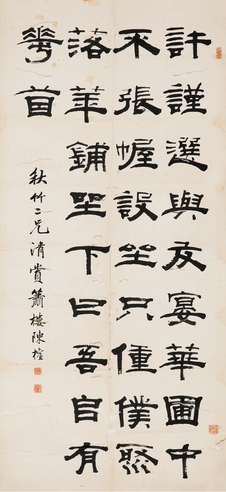 許謹選與友宴華圃中
不張幄設坐只僮僕聚
落華鋪坐下曰吾自有
華
秋竹二兄清賏 簫樓陳